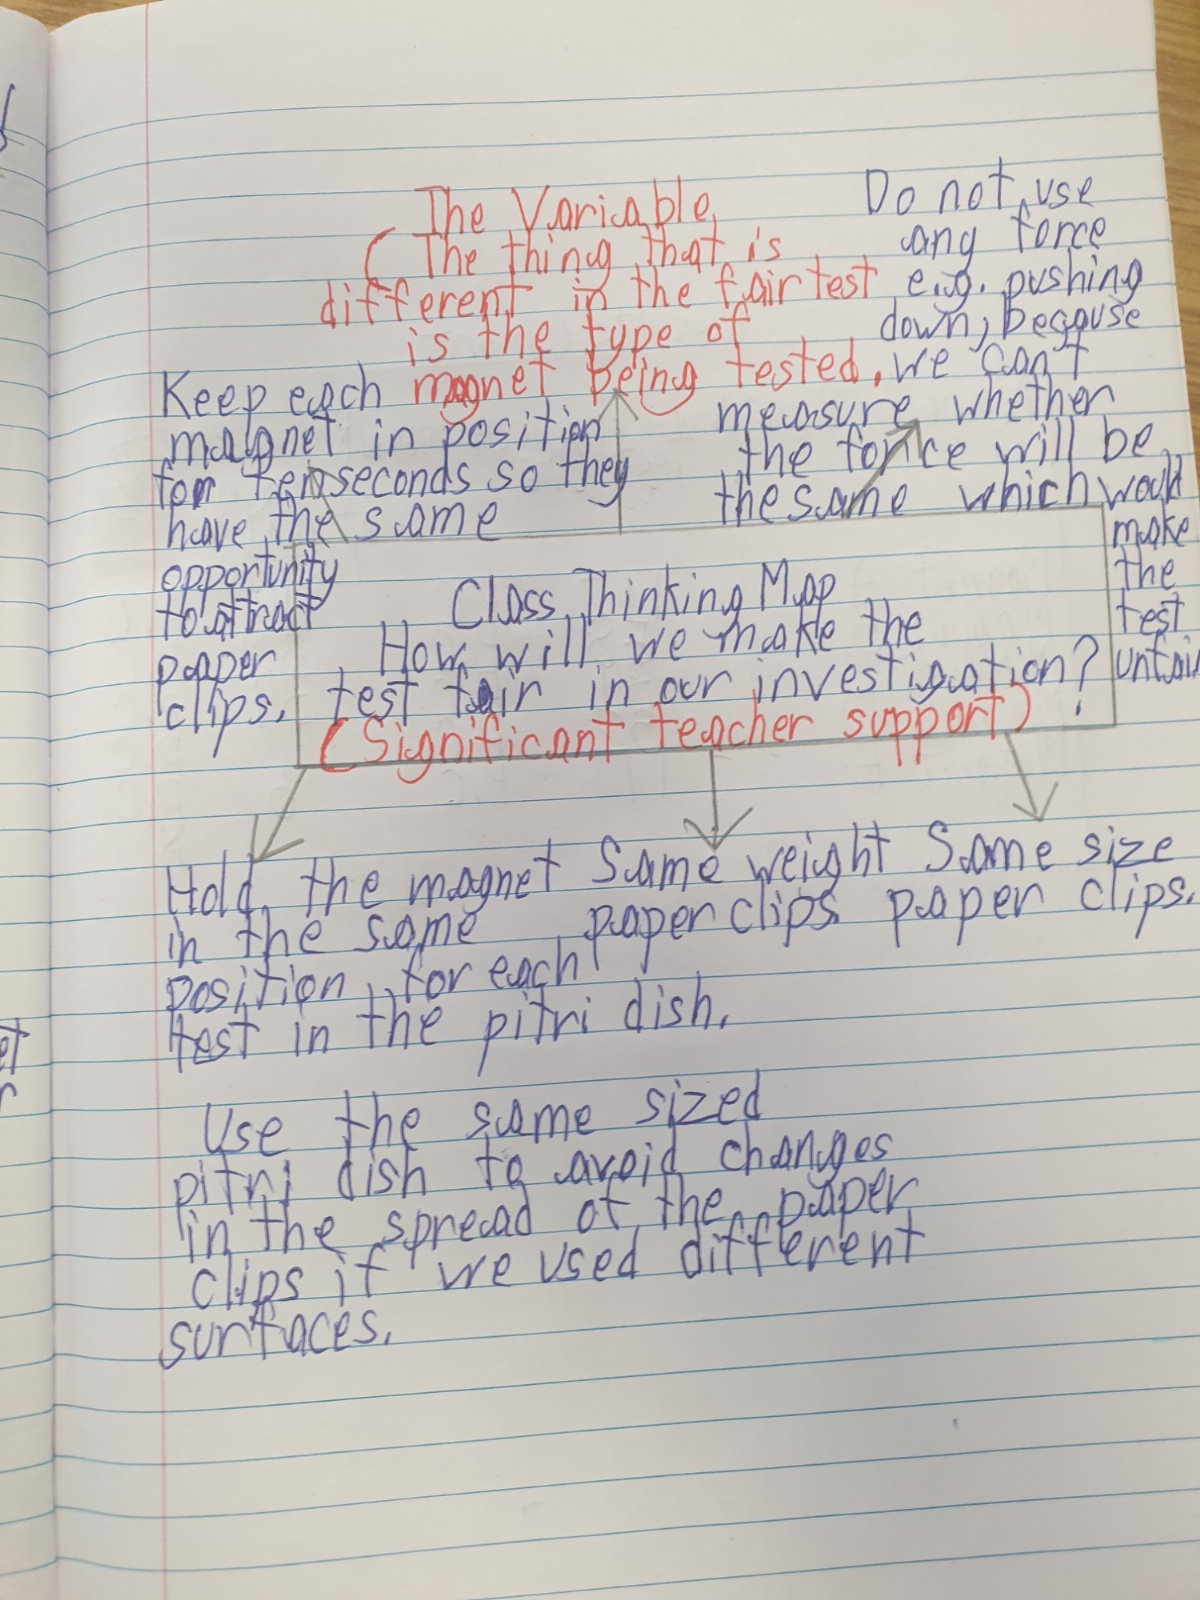 The Variable
(The thing that is
different in the fair test
is the type of
magnet being tested.
Do not use
any force
e.g. pushing
down, because
we can't
measure whether
the force will be
the same which would
make
the
test
unfair
Keep each
magnet in position
for ten seconds so they
have the same
opportunity
to attract
paper
clips.
Class Thinking Map
How will we make the
test fair in our investigation?
(Significant teacher support)
Hold the magnet
in the same
position for each
test in the pitri dish.
Same weight
paper clips
Same size
paper clips.
Use the same sized
pitri dish to avoid changes
in the spread of the paper
clips if we used different
surfaces.